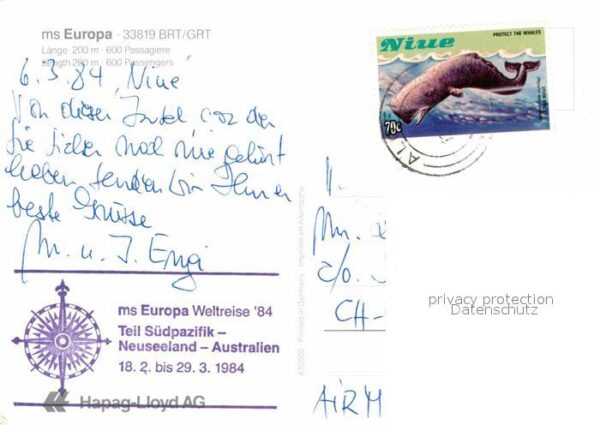 ms Europa · 33819 BRT/GRT
Länge 200 m · 600 Passagiere
Length 200 m · 600 Passengers
6.3.84, Niue
Von dieser Insel von der
Sie sicher noch nie gehört
haben, senden wir Ihnen
beste Grüsse
M. u. J. Engi
ms Europa Weltreise '84
Teil Südpazifik –
Neuseeland – Australien
18. 2. bis 29. 3. 1984
Hapag-Lloyd AG
430500 Printed in Germany Imprimé en Allemagne
PROTECT THE WHALES
Niue
70c
AL
c/o.
CH-
AIRM
privacy protection
Datenschutz